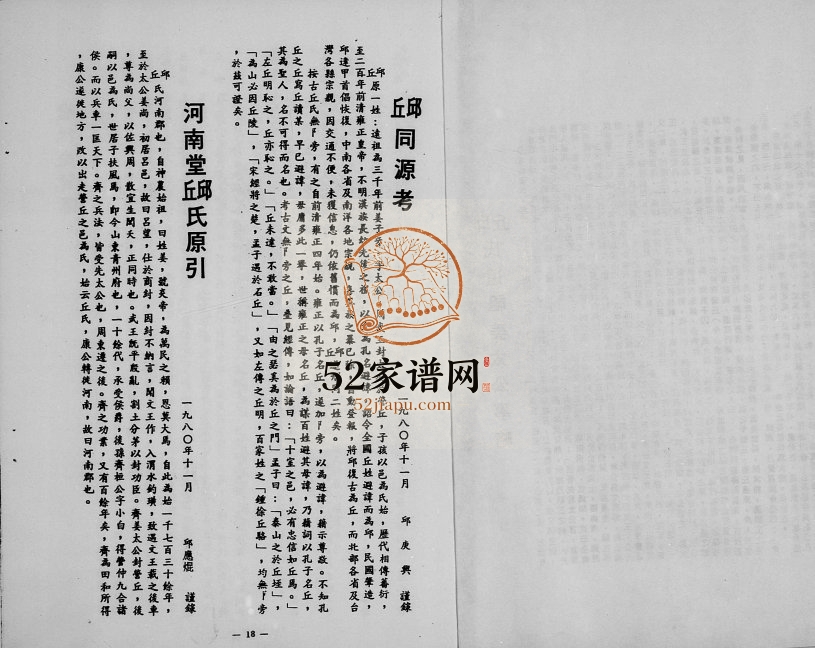 邱丘同源考
一九八〇年十一月 邱庚興 謹錄
邱丘原一姓：遠祖為三千年前姜子牙
丘，子孫以邑為氏始，歷代相傳蕃衍，
至二百年前清雍正皇帝，不明漢族長幼
為孔名避諱
令全國丘姓避諱而為邱，民國肇造，
邱逢甲首倡恢復，中南各省及南洋各地宗親
登報，將邱復古為丘，而北部各省及台
灣各縣宗親，因交通不便，未獲信息，仍依舊慣而為邱，
二姓矣。
按古丘氏無阝旁，有之自前清雍正四年始。雍正以孔子名丘，遂加阝旁，以為避諱，藉示尊敬。不知孔
丘之丘寫丘讀某，早已避諱，毋庸多此一舉，世稱雍正之母名丘，為謀百姓避其母諱，乃藉詞以孔子名丘，
其為聖人，名不可得而名也。考古文無阝旁之丘，疊見經傳，如論語曰：「十室之邑，必有忠信如丘焉。」
「左丘明恥之，丘亦恥之。」「丘未達，不敢嘗。」「由之瑟奚為於丘之門」孟子曰：「泰山之於丘垤」，
「為山必因丘陵」，「宋牼將之楚，孟子遇於石丘」，又如左傳之丘明，百家姓之「鍾徐丘駱」，均無阝旁
，於茲可證矣。
河南堂邱丘氏原引
一九八〇年十一月 邱應焜 謹錄
邱丘氏河南郡也，自神農始祖，曰姓姜，號炎帝，為萬民之賴，恩莫大焉，自此為始一千七百三十餘年，
至於太公姜尚，初居呂邑，故曰呂望，仕於商紂，因紂不納言，聞文王作，入渭水釣璜，致遇文王載之後車
，尊為尚父，以佐興周，散宜生閎夭，正同時也。武王既平殷亂，割土分茅以封功臣。齊姜太公封營丘，後
嗣以邑為氏，世居于扶風焉，即今山東青州府也，一十餘代，承受侯爵，後孫齊桓公字小白，得管仲九合諸
侯。而以兵車一匡天下。齊之兵法，皆受先太公也，周東遷之後。齊之功業，又有百餘年矣，齊為田和所得
，康公遂徙地方，改以出走營丘之邑為氏，始云丘氏，康公轉徙河南，故曰河南郡也。
— 18 —
52家谱网
52jiapu.com